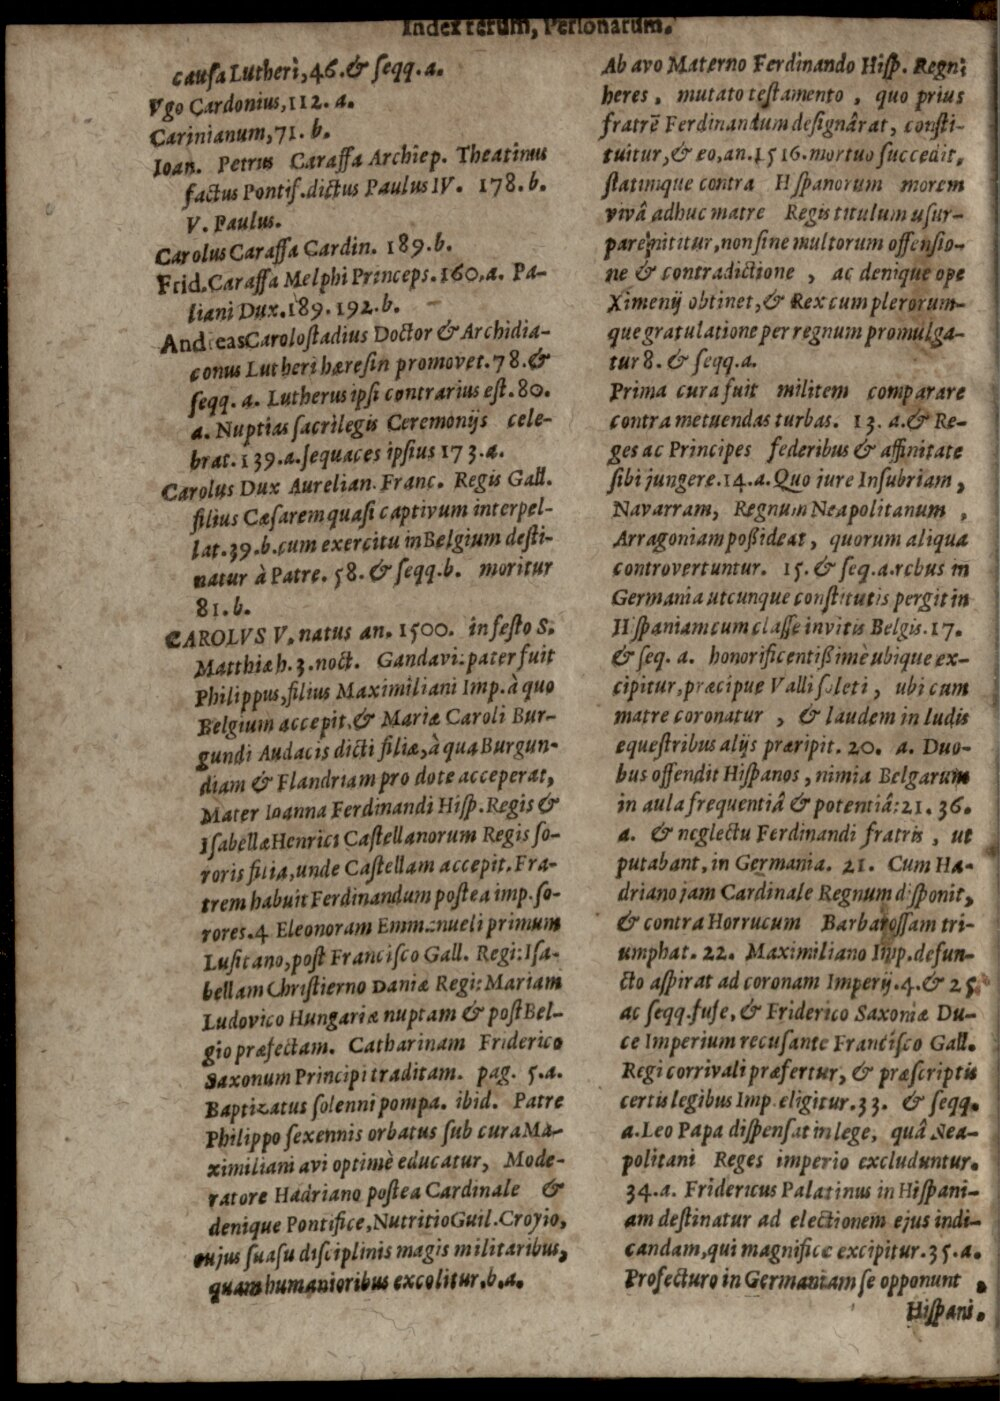 Index rerum, Personarum.
causa Lutheri, 46. & seqq. a.
Vgo Cardonius, 112. a.
Carinianum, 71. b.
Ioan. Petrus Caraffa Archiep. Theatinus
factus Pontif. dictus Paulus IV. 178. b.
V. Paulus.
Carolus Caraffa Cardin. 189. b.
Frid. Caraffa Melphi Princeps. 160. a. Pa-
liani Dux. 189. 192. b.
Andreas Carolostadius Doctor & Archidia-
conus Lutheri hæresin promovet. 78. &
seqq. a. Lutherus ipsi contrarius est. 80.
a. Nuptias sacrilegis Ceremonijs cele-
brat. 139. a. sequaces ipsius 173. a.
Carolus Dux Aurelian. Franc. Regis Gall.
filius Cæsarem quasi captivum interpel-
lat. 39. b. cum exercitu in Belgium desti-
natur à Patre. 58. & seqq. b. moritur
81. b.
CAROLVS V. natus an. 1500. in festo S.
Matthiæ h. 3. noct. Gandavi: pater fuit
Philippus, filius Maximiliani Imp. à quo
Belgium accepit, & Mariæ Caroli Bur-
gundi Audacis dicti filiæ, à qua Burgun-
diam & Flandriam pro dote acceperat,
Mater Ioanna Ferdinandi Hisp. Regis &
Isabellæ Henrici Castellanorum Regis so-
roris filia, unde Castellam accepit. Fra-
trem habuit Ferdinandum postea imp. so-
rores. 4 Eleonoram Emmanueli primum
Lusitano, post Francisco Gall. Regi: Isa-
bellam Christierno Daniæ Regi: Mariam
Ludovico Hungariæ nuptam & post Bel-
gio præfectam. Catharinam Friderico
Saxonum Principi traditam. pag. 5. a.
Baptizatus solenni pompa. ibid. Patre
Philippo sexennis orbatus sub cura Ma-
ximiliani avi optimè educatur, Mode-
ratore Hadriano postea Cardinale &
denique Pontifice, Nutritio Guil. Croyio,
cujus suasu disciplinis magis militaribus,
quam humanioribus excolitur. b. a.
Ab avo Materno Ferdinando Hisp. Regni
heres, mutato testamento, quo prius
fratrē Ferdinandum designârat, consti-
tuitur, & eo, an. 1516. mortuo succedit,
statimque contra Hispanorum morem
vivâ adhuc matre Regis titulum usur-
pare nititur, non sine multorum offensio-
ne & contradictione, ac denique ope
Ximenij obtinet, & Rex cum plerorum-
que gratulatione per regnum promulga-
tur 8. & seqq. a.
Prima cura fuit militem comparare
contra metuendas turbas. 13. a. & Re-
ges ac Principes federibus & affinitate
sibi jungere. 14. a. Quo iure Insubriam,
Navarram, Regnum Neapolitanum,
Arragoniam poßideat, quorum aliqua
controvertuntur. 15. & seq. a. rebus in
Germania utcunque constitutis pergit in
Hispaniam cum classe invitis Belgis. 17.
& seq. a. honorificentißimè ubique ex-
cipitur, præcipue Valli soleti, ubi cum
matre coronatur, & laudem in ludis
equestribus alijs præripit. 20. a. Duo-
bus offendit Hispanos, nimia Belgarum
in aula frequentiâ & potentiâ: 21. 36.
a. & neglectu Ferdinandi fratris, ut
putabant, in Germania. 21. Cum Ha-
driano jam Cardinale Regnum disponit,
& contra Horrucum Barbarossam tri-
umphat. 22. Maximiliano Imp. defun-
cto aspirat ad coronam Imperij. 4. & 25
ac seqq. fuse, & Friderico Saxoniæ Du-
ce Imperium recusante Francisco Gall.
Regi corrivali præfertur, & præscriptis
certis legibus Imp. eligitur. 33. & seqq.
a. Leo Papa dispensat in lege, quâ Nea-
politani Reges imperio excluduntur.
34. a. Fridericus Palatinus in Hispani-
am destinatur ad electionem ejus indi-
candam, qui magnifice excipitur. 35. a.
Profecturo in Germaniam se opponunt,
Hispani.